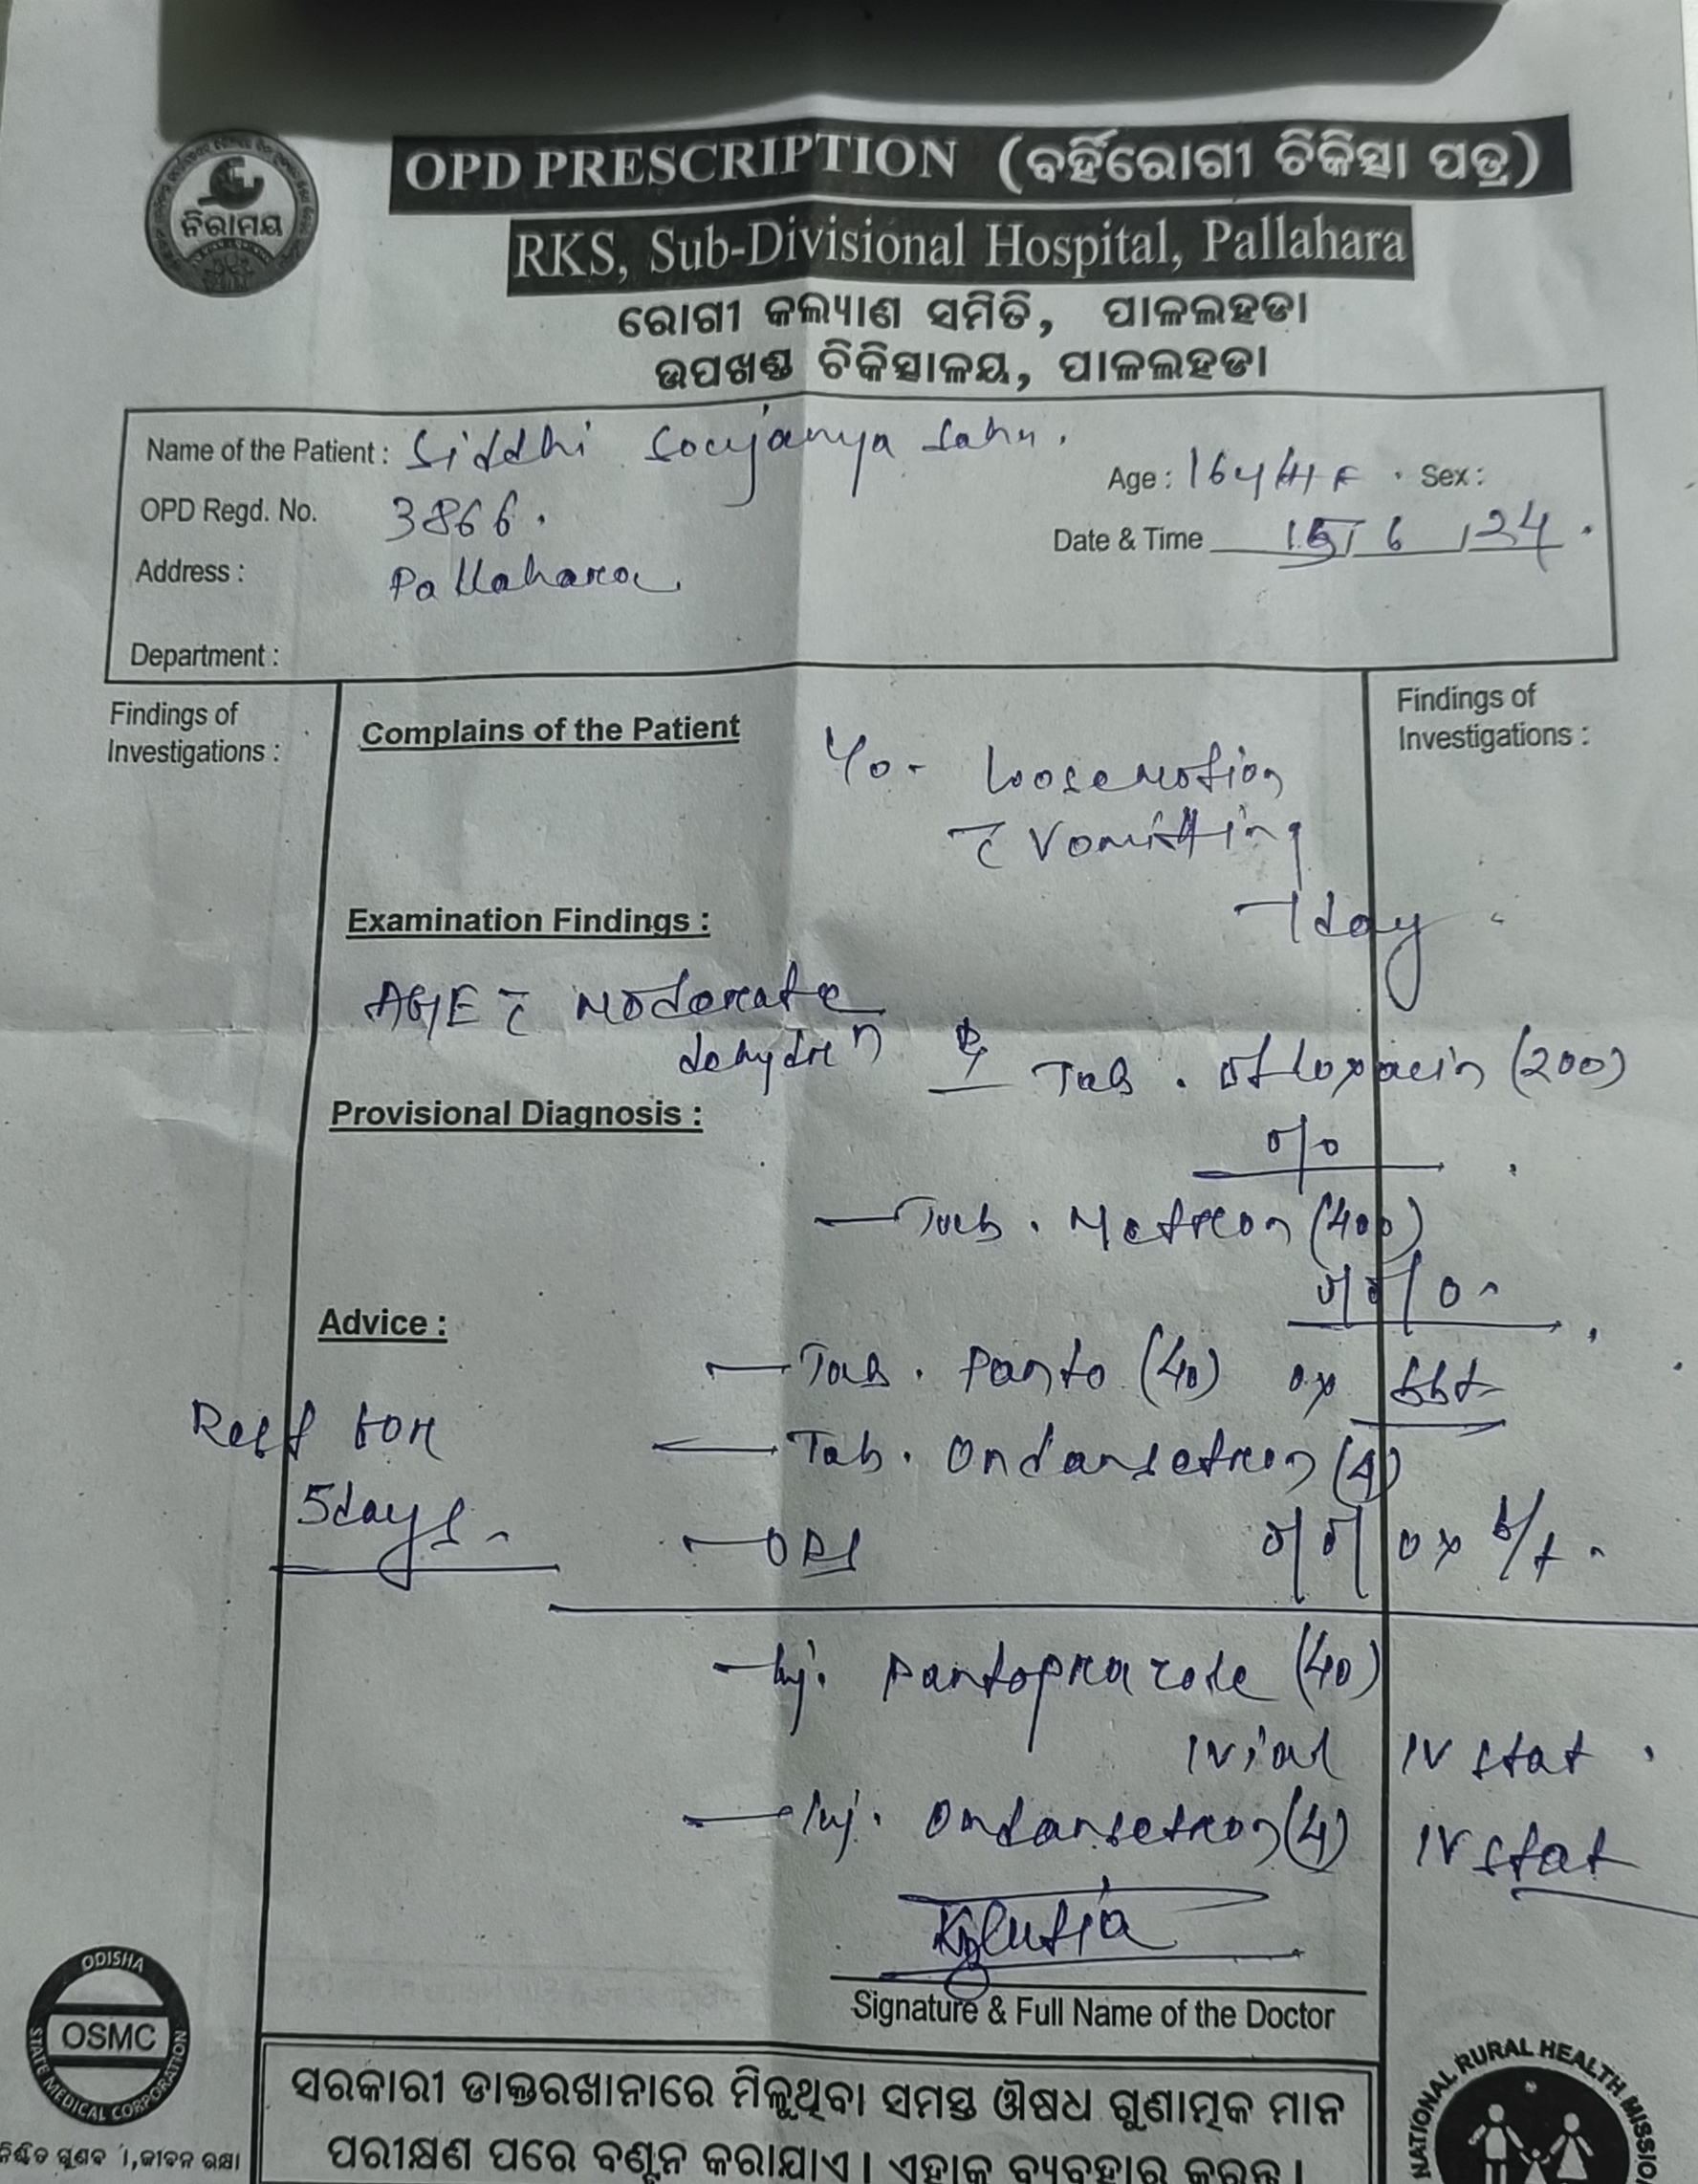 OPD PRESCRIPTION (ବର୍ହିରୋଗୀ ଚିକିତ୍ସା ପତ୍ର)
ନିରାମୟ
RKS, Sub-Divisional Hospital, Pallahara
ରୋଗୀ କଲ୍ୟାଣ ସମିତି, ପାଳଲହଡା
ଉପଖଣ୍ଡ ଚିକିତ୍ସାଳୟ, ପାଳଲହଡା
Name of the Patient : Siddhi Soujanya Sahu.
Age : 16y F . Sex :
OPD Regd. No. 3866.
Date & Time 15/6/24.
Address : Pallahara
Department :
Findings of
Investigations :
Complains of the Patient
Findings of
Investigations :
c/o - Loosemotion
c̄ Vomitting
1day
Examination Findings :
AGE c̄ Moderate
dehydrⁿ
Rx Tab. Ofloxacin (200)
Provisional Diagnosis :
0/0
— Tab. Metron (400)
0/0/0
Advice :
— Tab. Panto (40) bbf
Rest for
5days
— Tab. Ondansetron (4)
— ORS
— Inj. Pantoprazole (40)
1Vial IV stat.
— Inj. Ondansetron (4) IV stat
Signature & Full Name of the Doctor
ODISHA
OSMC
STATE MEDICAL CORPORATION
ନିଶ୍ଚିତ ,ଜୀବନ ରକ୍ଷା
ସରକାରୀ ଡାକ୍ତରଖାନାରେ ମିଳୁଥିବା ସମସ୍ତ ଔଷଧ ଗୁଣାତ୍ମକ ମାନ
ପରୀକ୍ଷଣ ପରେ ବଣ୍ଟନ କରାଯାଏ। ଏହାକୁ ବ୍ୟବହାର କରନ୍ତୁ।
NATIONAL RURAL HEALTH MISSION